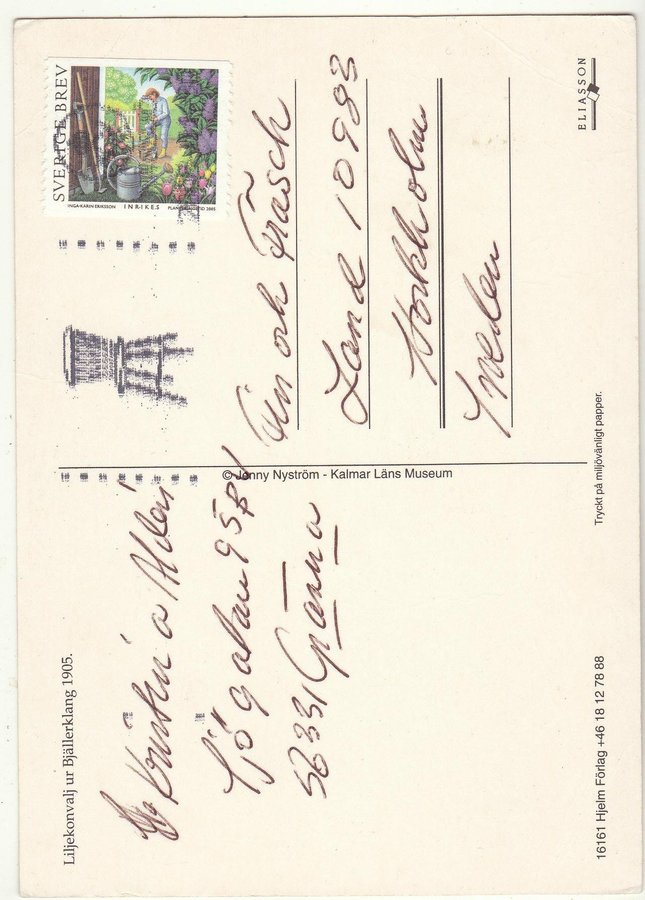 Liljekonvalj ur Bjällerklang 1905.
Kristina
Sjögatan 95
56331 Gränna
SVERIGE BREV
INGA-KARIN ERIKSSON INRIKES PLANTERINGSTID 2005
Fin och Fräsch
Land 10983
Stockholm
Sweden
© Jenny Nyström - Kalmar Läns Museum
ELIASSON
Tryckt på miljövänligt papper.
16161 Hjelm Förlag +46 18 12 78 88